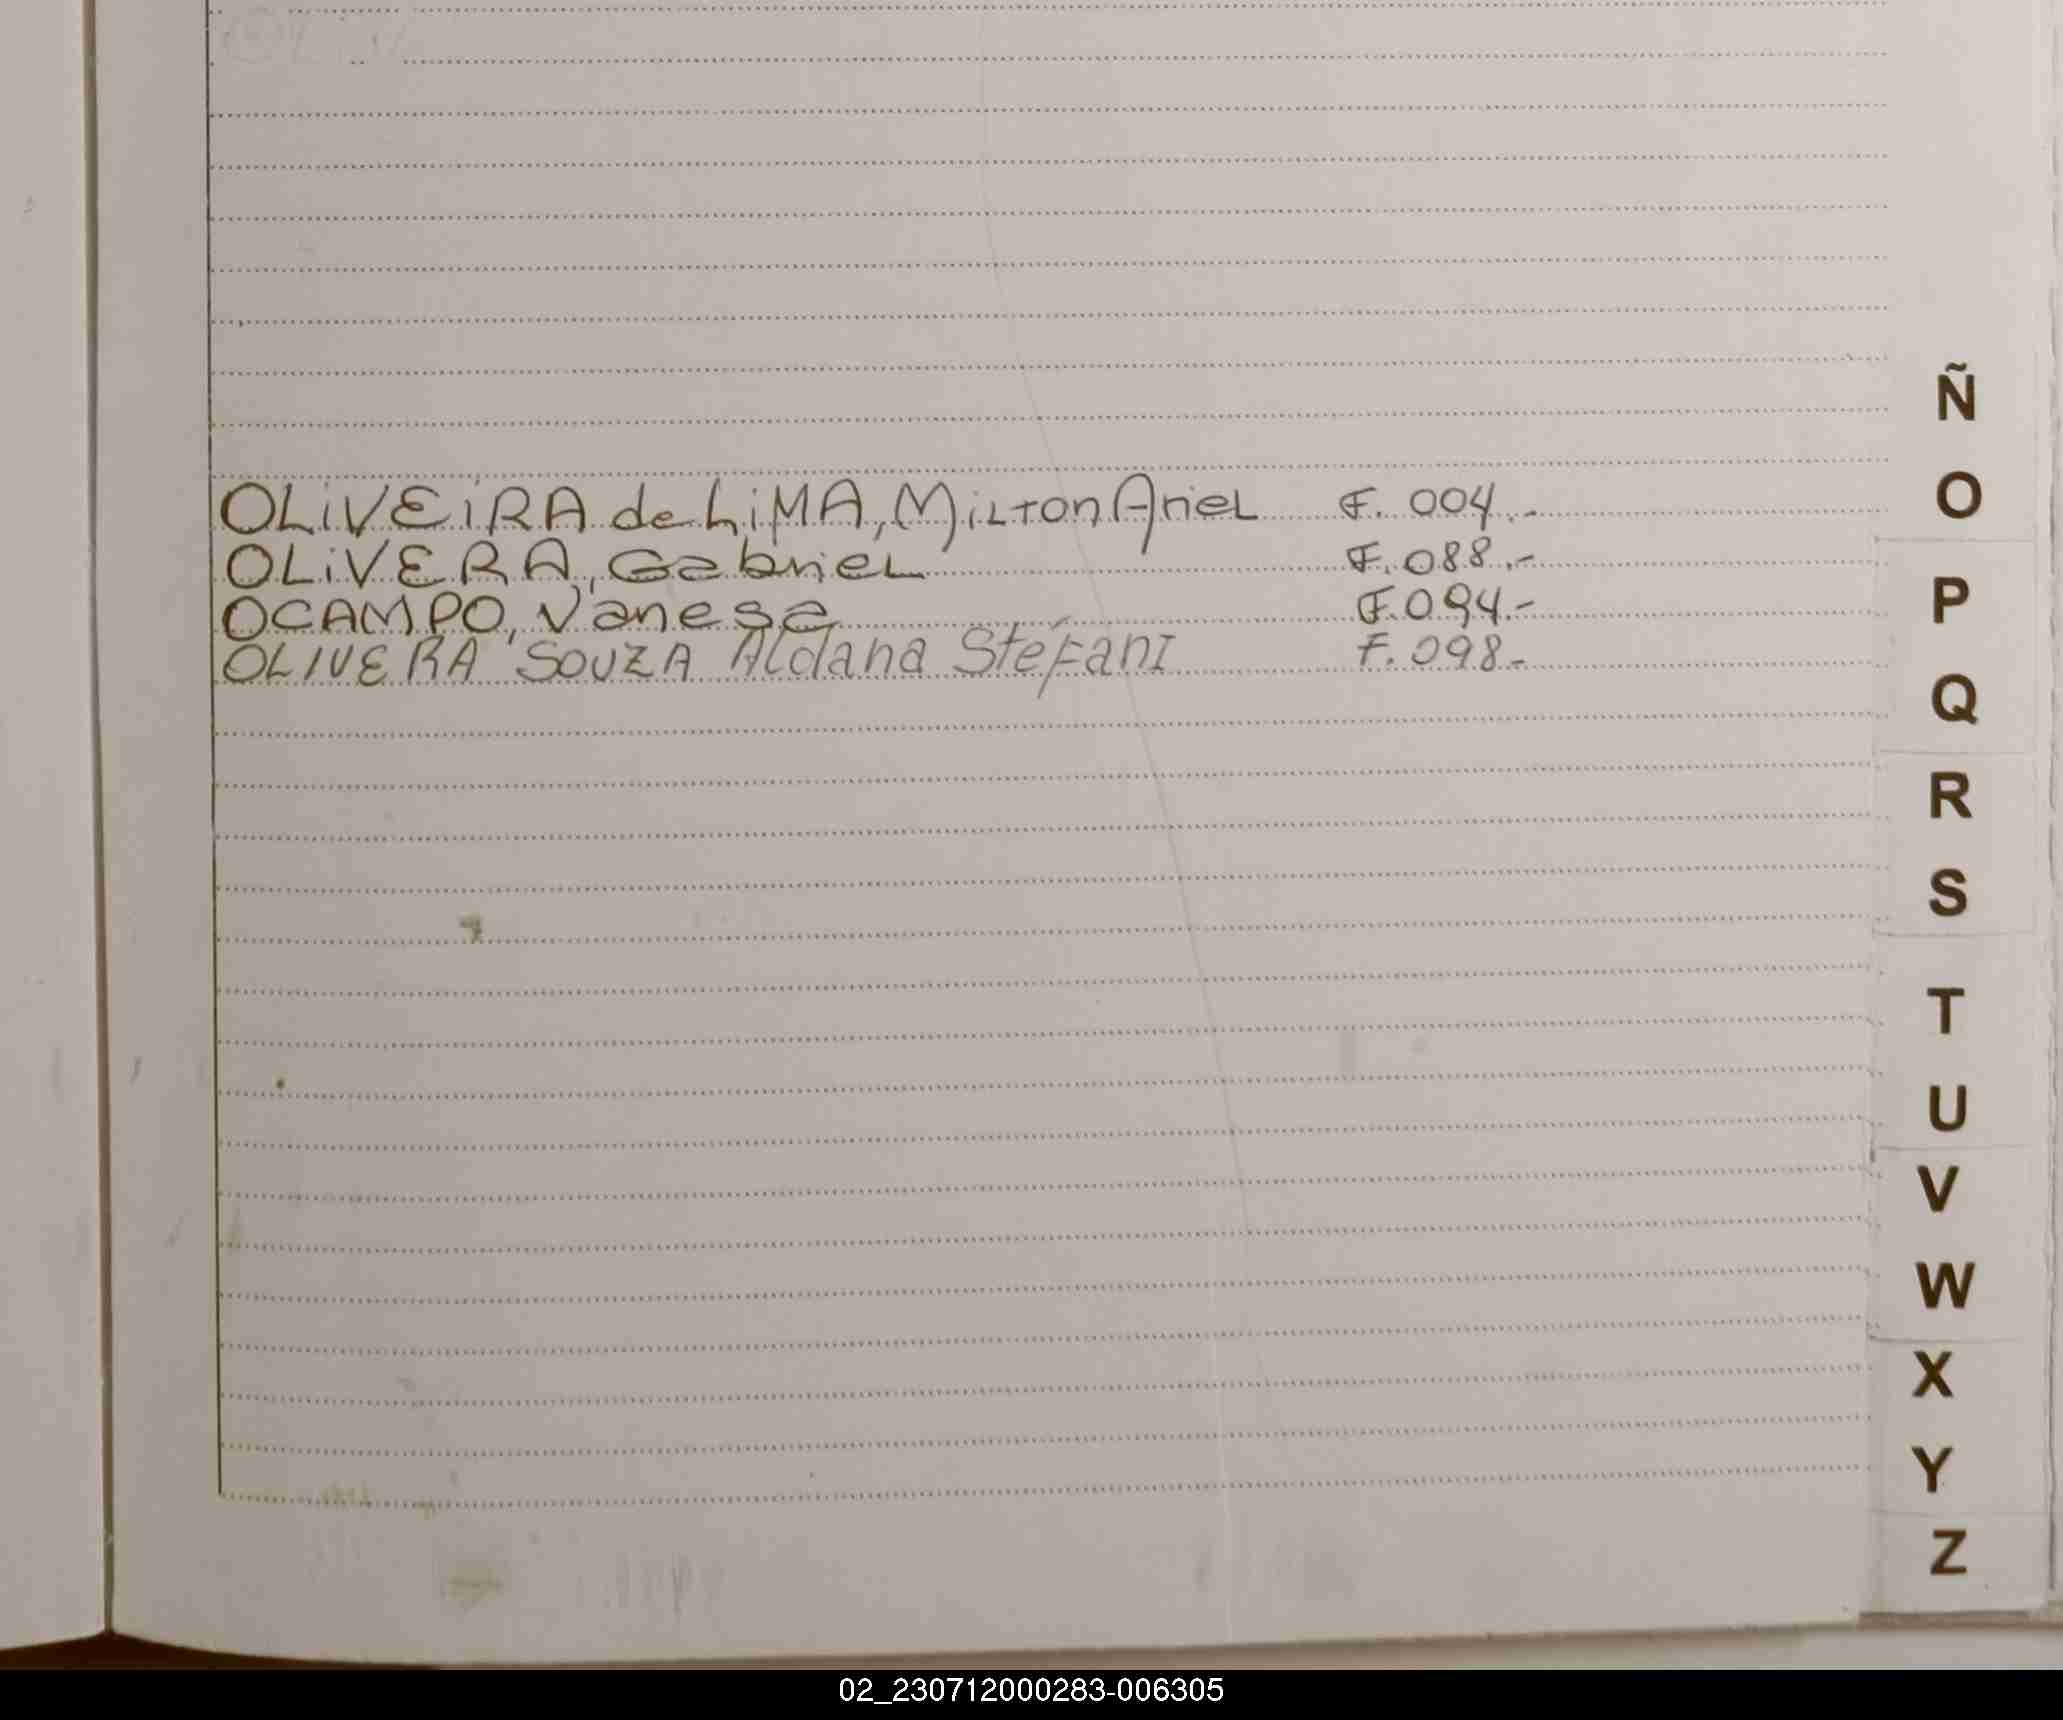 OLiVEiRA de LiMA, MiLTon AriEL F. 004.-
OLiVERA, Gabriel F. 088.-
OCAMPO, Vanesa F. 094.-
OLIVERA SOUZA Aldana Stéfani F. 098-
Ñ
O
P
Q
R
S
T
U
V
W
X
Y
Z
02_230712000283-006305